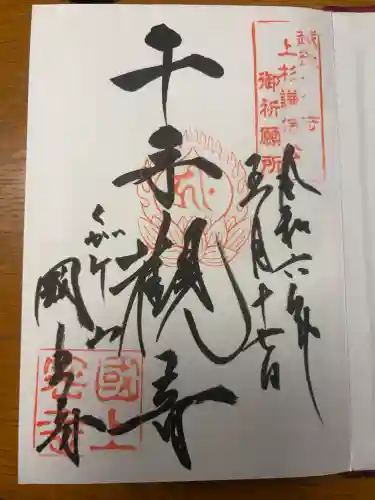 上杉謙信公
御祈願所
令和六年
五月十七日
千手観音
くがみ山
国上寺
國上